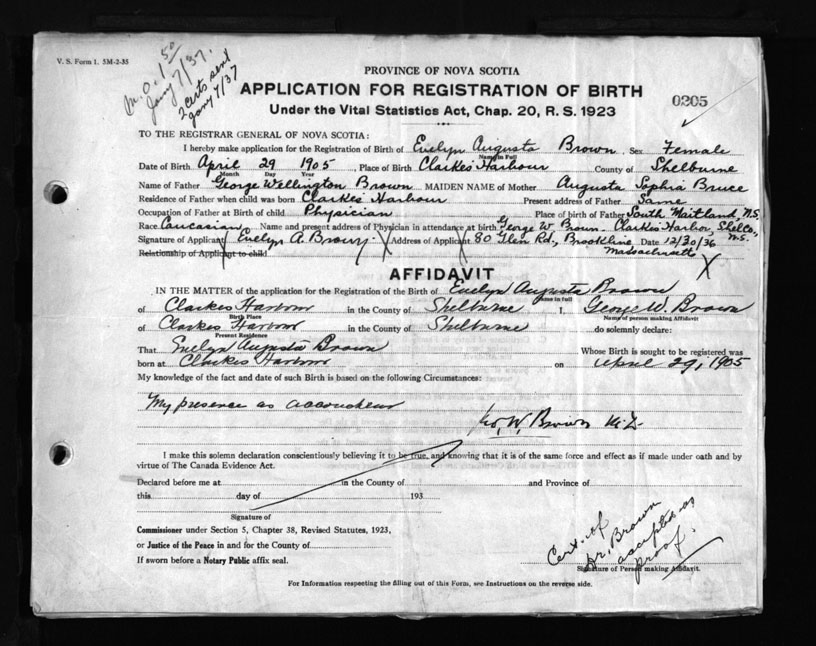 V. S. Form 1. 5M-2-35
M.O. 1.50
Jany 7/37.
2 certs sent
Jany 7/37
PROVINCE OF NOVA SCOTIA
APPLICATION FOR REGISTRATION OF BIRTH
0205
Under the Vital Statistics Act, Chap. 20, R. S. 1923
TO THE REGISTRAR GENERAL OF NOVA SCOTIA:
I hereby make application for the Registration of Birth of Evelyn Augusta Brown Sex Female
Name in Full
Date of Birth April 29 1905, Place of Birth Clarkes Harbour County of Shelburne
Month Day Year
Name of Father George Wellington Brown MAIDEN NAME of Mother Augusta Sophia Bruce
Residence of Father when child was born Clarkes Harbour Present address of Father Same
Occupation of Father at Birth of child Physician Place of birth of Father South Maitland, N.S.
Race Caucasian Name and present address of Physician in attendance at birth George W. Brown - Clarkes Harbor, Shel. Co., N.S.
Signature of Applicant Evelyn A. Brown Address of Applicant 80 Glen Rd., Brookline, Massachusetts Date 12/30/36
Relationship of Applicant to child
AFFIDAVIT
IN THE MATTER of the application for the Registration of the Birth of Evelyn Augusta Brown
Name in full
of Clarkes Harbour in the County of Shelburne I, George W. Brown
Birth Place Name of person making Affidavit
of Clarkes Harbour in the County of Shelburne do solemnly declare:
Present Residence
That Evelyn Augusta Brown Whose Birth is sought to be registered was
born at Clarkes Harbour on April 29, 1905
My knowledge of the fact and date of such Birth is based on the following Circumstances:
My presence as accoucheur
Geo. W. Brown M.D.
I make this solemn declaration conscientiously believing it to be true, and knowing that it is of the same force and effect as if made under oath and by
virtue of The Canada Evidence Act.
Declared before me at in the County of and Province of
this day of 193
Signature of
Commissioner under Section 5, Chapter 38, Revised Statutes, 1923,
or Justice of the Peace in and for the County of
If sworn before a Notary Public affix seal.
Cert. of
Dr. Brown
accepted as
proof.
Signature of Person making Affidavit.
For Information respecting the filling out of this Form, see Instructions on the reverse side.